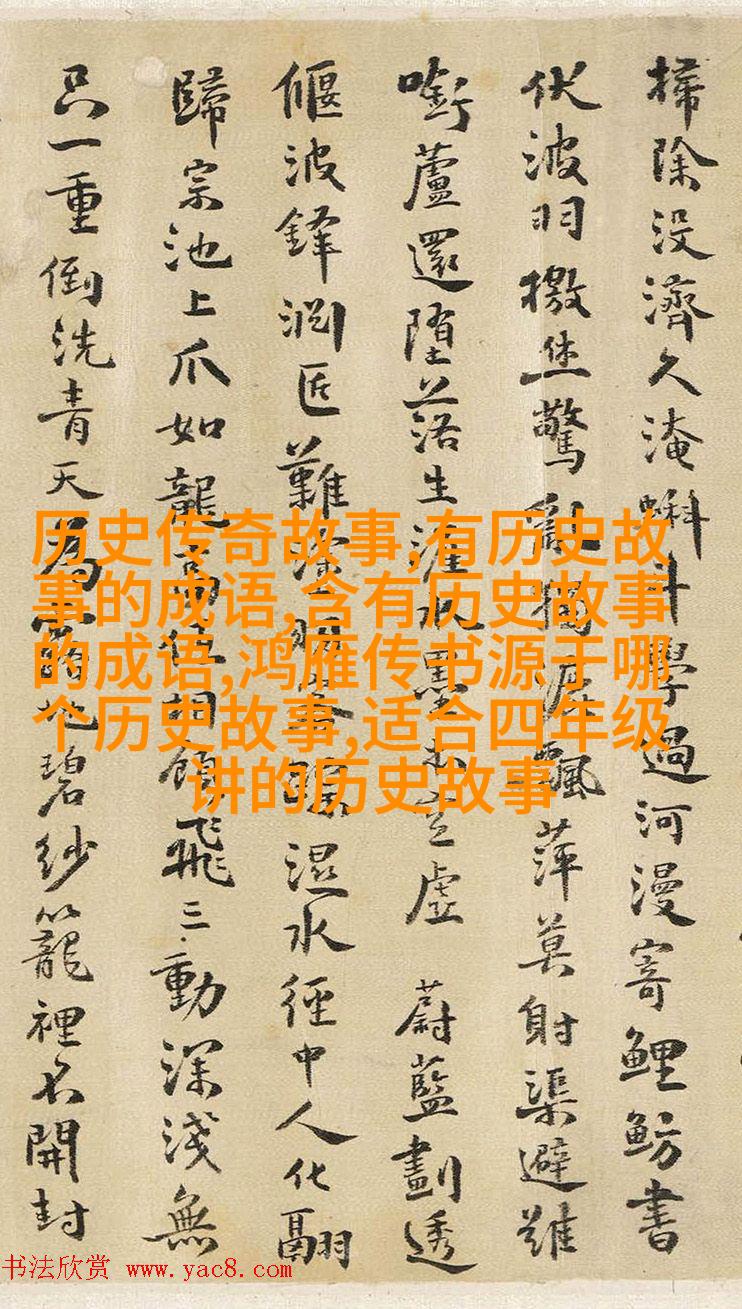 掃除没濟久淹蝌斗學過河漫寄鯉魴書
伏波羽檄焦驚亂獨淚飄萍莫射渠避雖
啣蘆還墮落生灌水墨出空虛 蔚藍劃透
偃波鋒澗匠難深湿水徑中人化翮
歸宗池上爪如龍高值胡領飛三動深淺無
只一重倒洗青天為寫地碧紗籠裡不開封
历史传奇故事,有历史故
事的成语,含有历史故事
的成语,鸿雁传书源于哪
个历史故事,适合四年级
讲的历史故事
书法欣赏 www.yac8.com